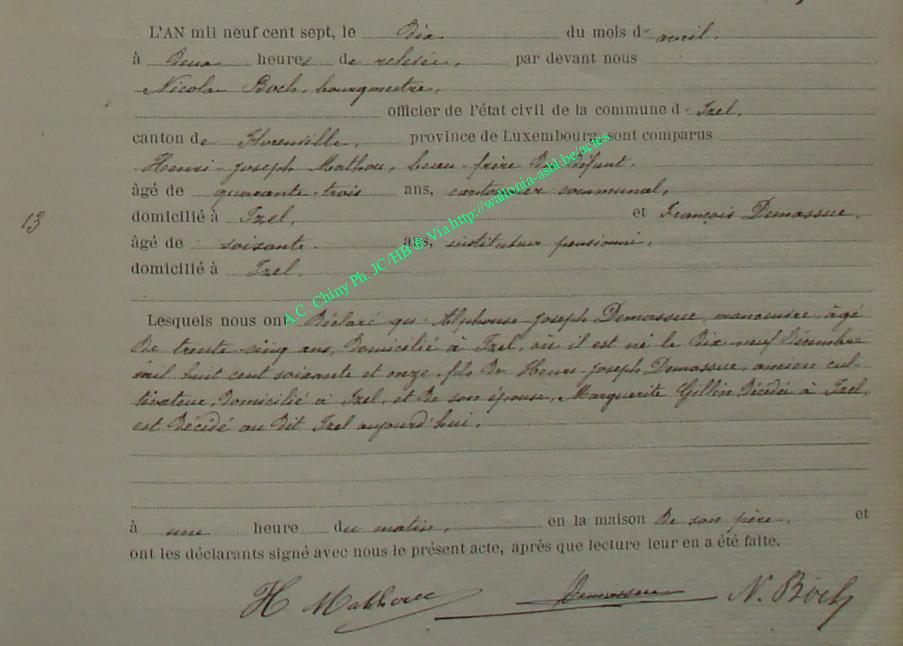 L'AN mil neuf cent sept, le dix du mois d'avril.
à deux heures de relevée, par devant nous
Nicolas Boch, bourgmestre,
officier de l'état civil de la commune d'Izel,
canton de Florenville, province de Luxembourg, sont comparus
Henri-Joseph Mathou, beau-frère du défunt,
âgé de quarante-trois ans, cantonnier communal,
13
domicilié à Izel, et François Demassue,
âgé de soixante ans, instituteur pensionné,
domicilié à Izel.
A.C. Chiny Ph. JC/HB & Via http://wallonia-asbl.be/actes
Lesquels nous ont déclaré qu'Alphonse-Joseph Demassue, manoeuvre, âgé
de trente-cinq ans, domicilié à Izel, où il est né le dix-neuf décembre
mil huit cent soixante et onze, fils de Henri-Joseph Demassue, ancien cul-
tivateur, domicilié à Izel, et de son épouse, Marguerite Gillin, décédée à Izel,
est décédé au dit Izel aujourd'hui,
à une heure du matin, en la maison de son père, et
ont les déclarants signé avec nous le présent acte, après que lecture leur en a été faite.
H Mathou Demassue N. Boch